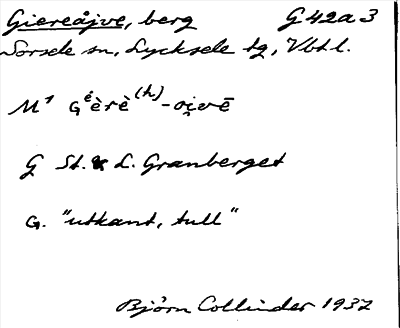 Giereåjve, berg G 42a 3
Sorsele sn, Lycksele tg, Vbtl.
M¹ Gᵉ́èrè⁽ʰ⁾-oi̯vē
G St. & L. Granberget
G. "utkant, tull"
Björn Collinder 1937